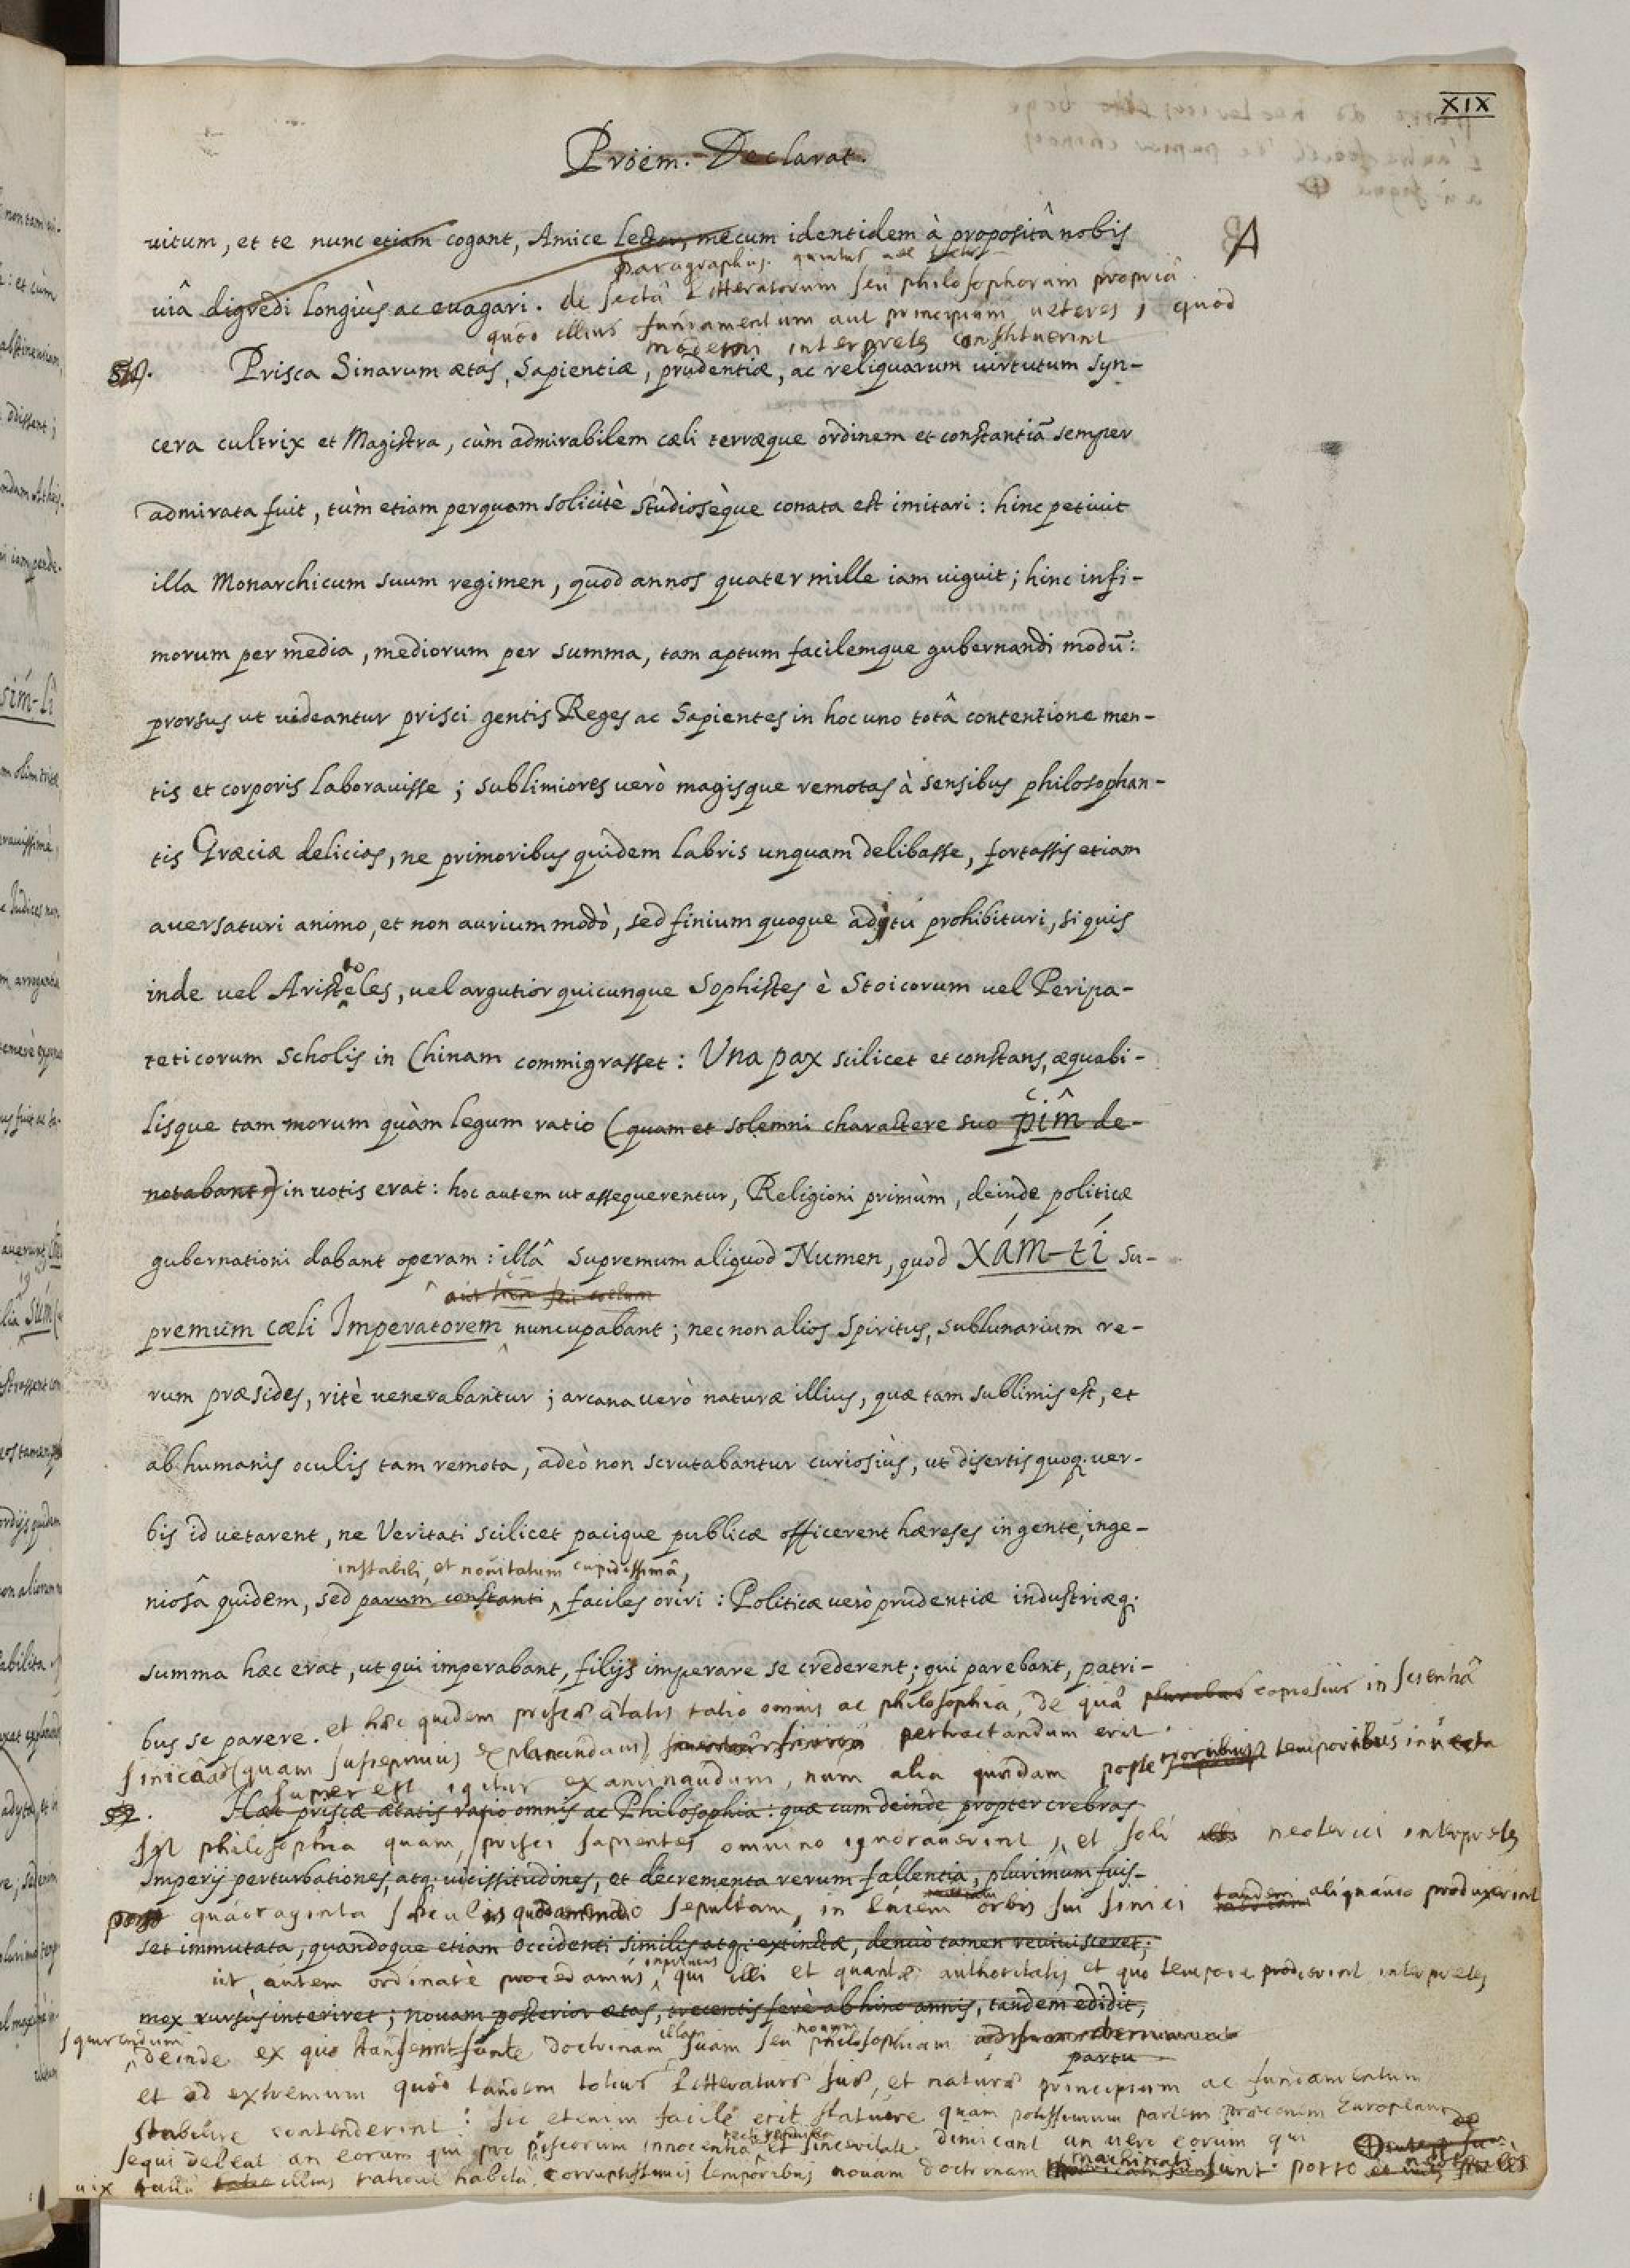 XIX
Proem. Declarat.
uitum, et te nunc etiam cogant, Amice lector, mecum identidem à propositâ nobis
A
paragraphus. quintus
uiâ digredi longiùs ac euagari. de sectâ Litteratorum seu philosophorum propriâ.
quod illius fundamentum aut principium ueteres, quod
moderni interpretes constituerint
Prisca Sinarum ætas, Sapientiæ, prudentiæ, ac reliquarum uirtutum syn-
cera cultrix et Magistra, cùm admirabilem cæli terræque ordinem et constantiã semper
admirata fuit, tùm etiam perquam solicitè studiosèque conata est imitari: hinc petiuit
illa Monarchicum suum regimen, quod annos quater mille iam uiguit; hinc infi-
morum per media, mediorum per summa, tam aptum facilemque gubernandi modũ:
prorsus ut uideantur prisci gentis Reges ac Sapientes in hoc uno totâ contentione men-
tis et corporis laborauisse; sublimiores uerò magisque remotas à sensibus philosophan-
tis Græciæ delicias, ne primoribus quidem labris unquam delibasse, fortassis etiam
auersaturi animo, et non aurium modò, sed finium quoque aditu prohibituri, si quis
inde uel Aristoteles, uel argutior quicunque Sophistes è Stoicorum uel Peripa-
teticorum scholis in Chinam commigrasset: Una pax scilicet et constans, æquabi-
lisque tam morum quàm legum ratio (quam et solemni charactere suo pîm de-
notabant) in uotis erat: hoc autem ut assequerentur, Religioni primùm, deinde politicæ
gubernationi dabant operam: illâ supremum aliquod Numen, quod Xám-tí su-
aut seu coelum
premum cæli Imperatorem nuncupabant; nec non alios Spiritus, sublunarium re-
rum præsides, ritè uenerabantur; arcana uerò naturæ illius, quæ tam sublimis est, et
ab humanis oculis tam remota, adeò non scrutabantur curiosiùs, ut disertis quoq. uer-
bis id uetarent, ne Veritati scilicet pacique publicæ officerent hæreses in gente, inge-
instabili, et nouitatum cupidissimâ,
niosâ quidem, sed parum constanti, faciles oriri: Politicæ uerò prudentiæ industriæq.
summa hæc erat, ut qui imperabant, filijs imperare se crederent; qui parebant, patri-
bus se parere. et hæc quidem priscæ ætatis ratio omnis ac philosophia, de quâ pluribus copiosius in scientiâ
sinicâ (quam suscepimus explanandam) pertractandum erit.
superest igitur examinandum, num alia quædam posterioribus temporibus inuecta
Hæc priscæ ætatis ratio omnis ac Philosophia: quæ cum deinde propter crebras
sit philosophia quam prisci sapientes omnino ignorauerint, et soli neoterici interpretes
Imperij perturbationes, atq. uicissitudines, et decrementa rerum fallentia, plurimùm fuis-
post quadraginta sæculis quodammodo sepultam, in lucem orbis sui sinici tandem aliquando produxerint
set immutata, quandoque etiam Occidenti similis atq. extinctæ, denuò tamen reuiuisceret;
ut autem ordinatè procedamus, inprimis qui illi et quantæ authoritatis et quo tempore prodierint interpretes
mox rursus interiret; nouam posterior ætas, trecentis ferè abhinc annis, tandem edidit,
deinde ex quo fonte doctrinam illam suam seu nouam philosophiam
partu
et ad extremum quod tandem totius Litteraturæ suæ, et naturæ principium ac fundamentum
stabilire contenderint: sic etenim facile erit statuere quam potissimum partem præconem Europæum
sequi debeat an eorum qui pro priscorum innocentia et sinceritate dimicant an uero eorum qui
uix illius ratione habitâ corruptissimis temporibus nouam doctrinam machinati sunt: porro